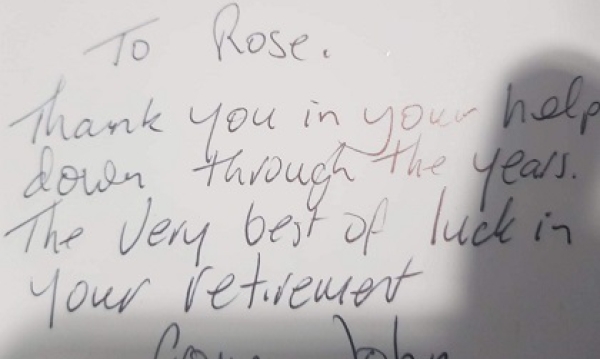 To Rose.
Thank you in your help
down through the years.
The Very best of luck in
your retirement
John